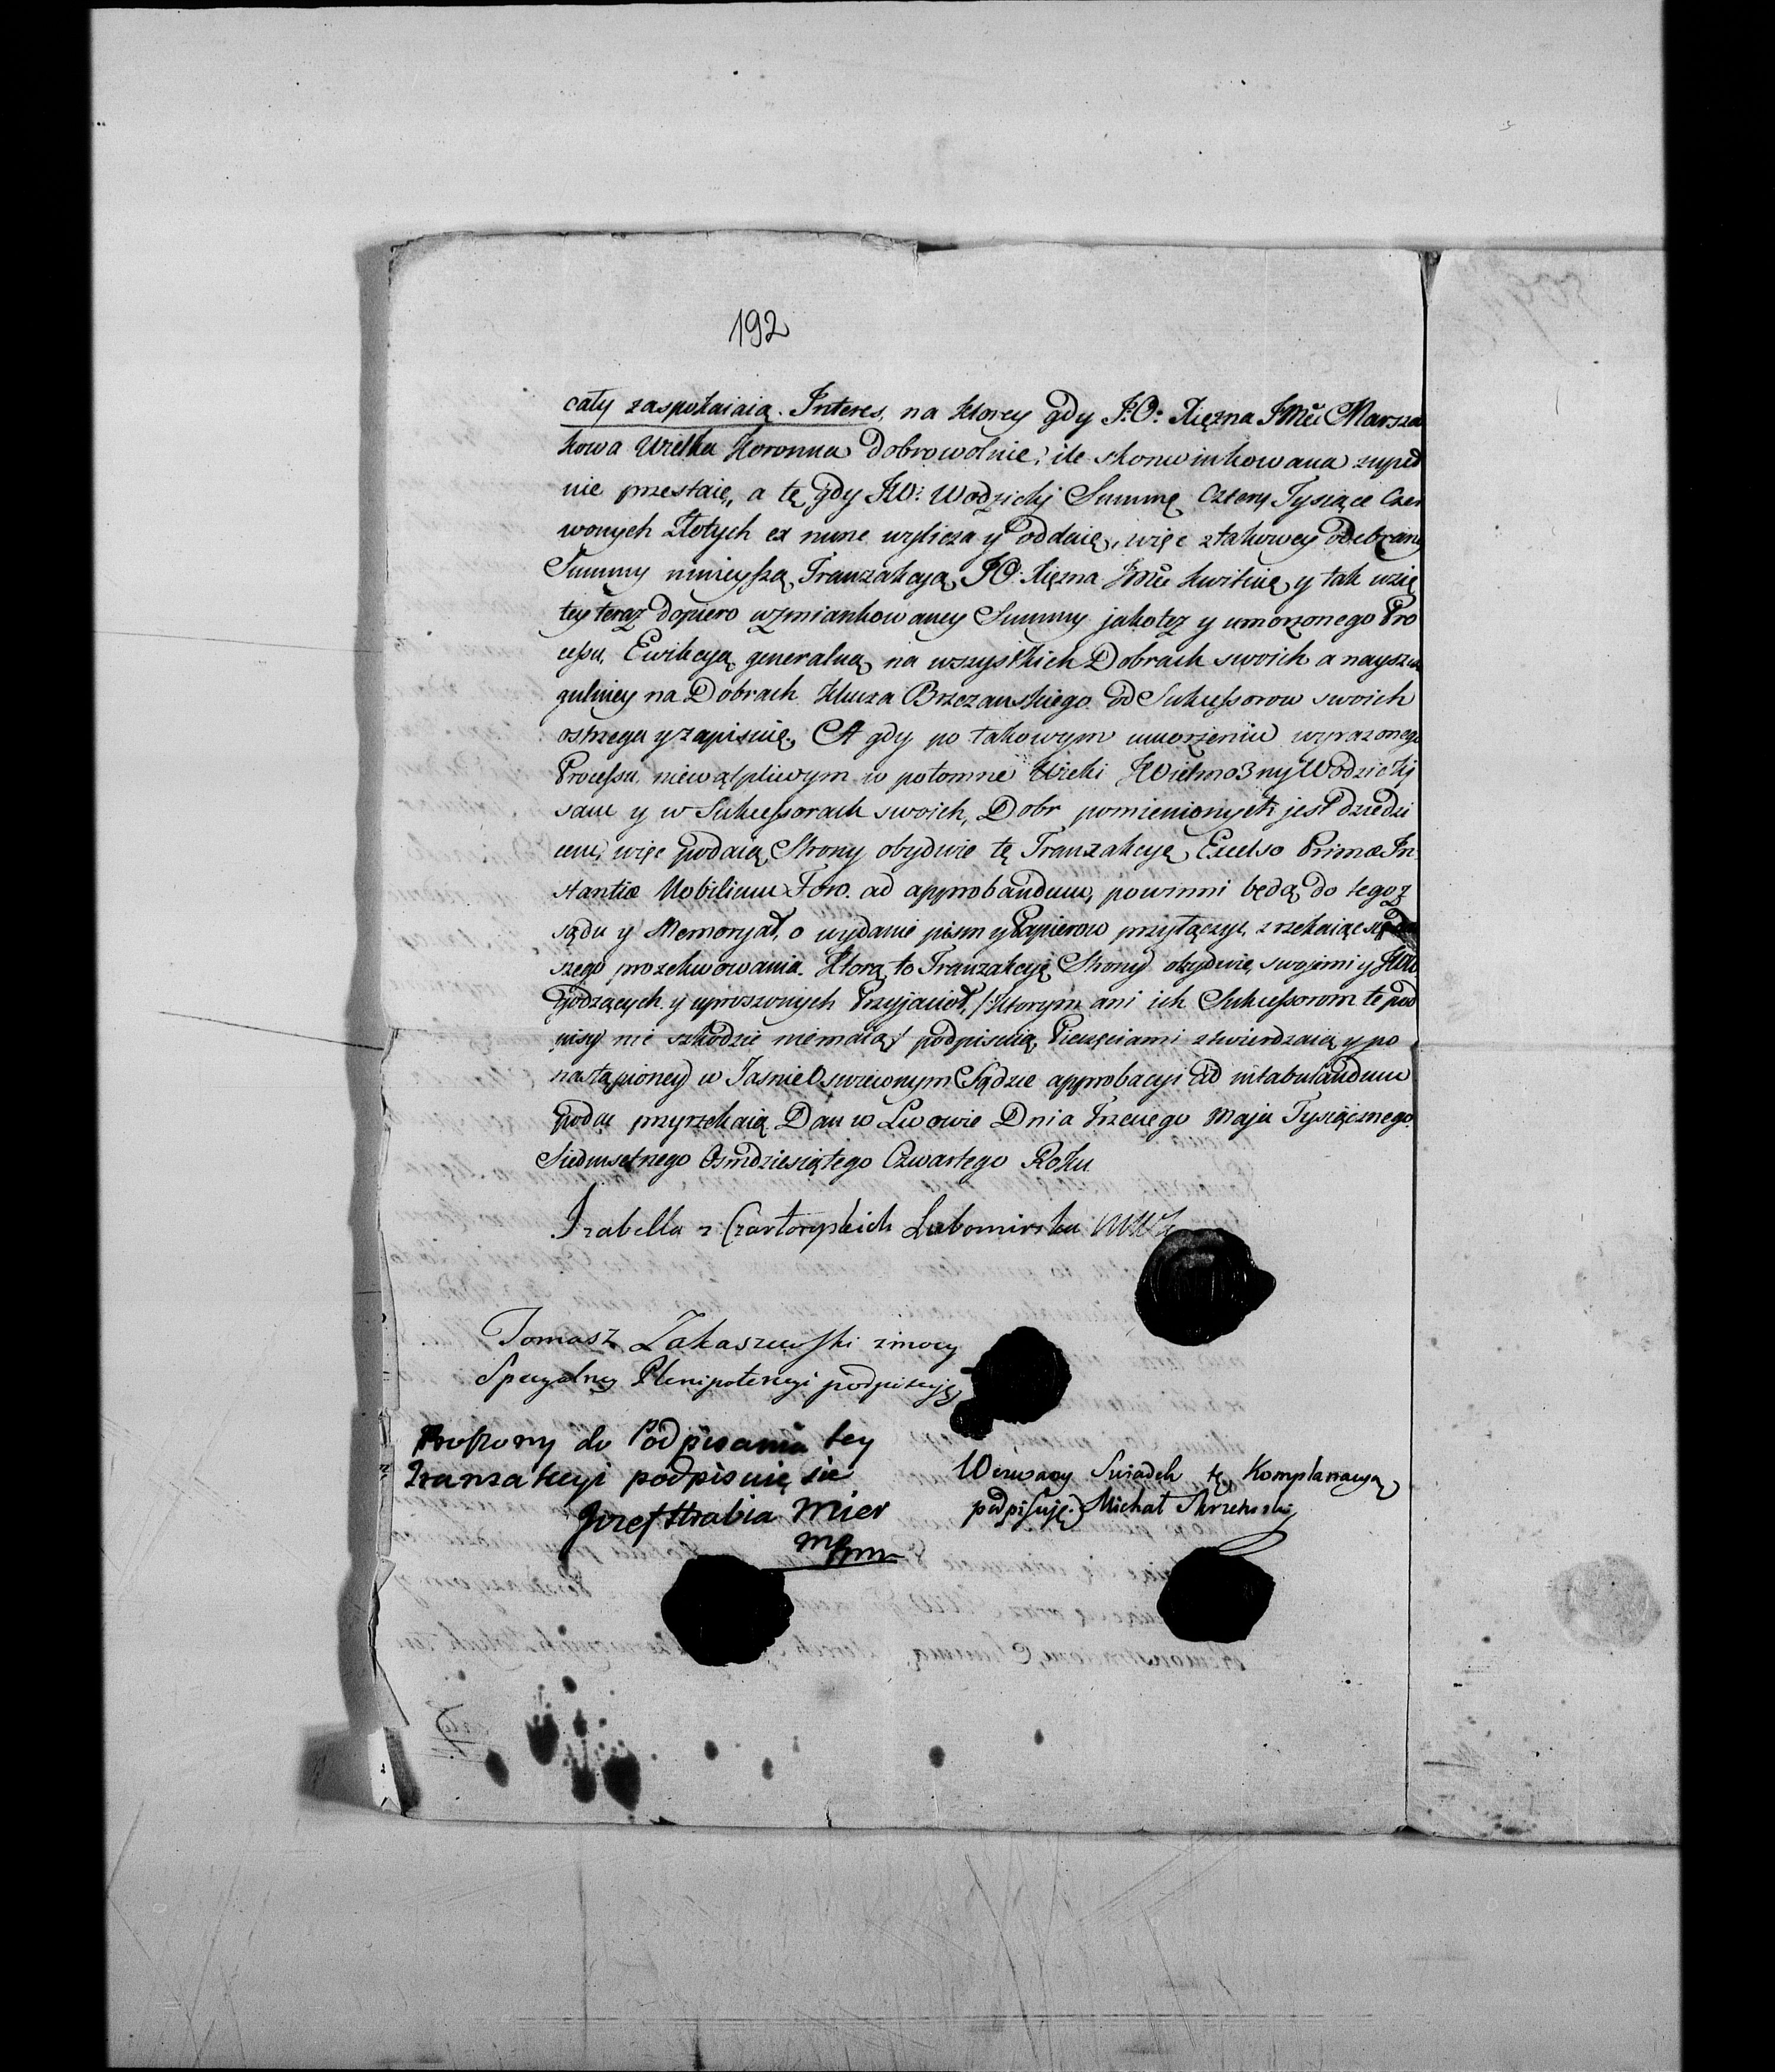 192
cały zaspokaiaią Interes, na ktorey gdy J:O: Xięzna JMći Marszał
kowa Wielka Koronna Dobrowolnie, ile skonwinkowana zupeł
nie przestaie, a tę gdy JW: Wodzicki Summę Cztery Tysiące Czer
wonych Złotych ex nunc wylicza y oddaie, więc ztakowey odebraney
Summy ninieyszą Tranzakcyą JO: Xięzna JMći kwituie, y tak wzię
tey teraz dopiero wzmiankowaney Summy jakotez y umorzonego Pro
cessu, Ewikcyą generalną na wszystkich Dobrach swoich a nayszcze
gulniey na Dobrach Klucza Brzezanskiego od Sukcessorow swoich
ostrzega y zapisuie. A gdy po takowym umorzeniu wyrazonego
Processu, niewątpliwym w potomne Wieki JWielmozny Wodzicki
sam y w Sukcessorach swoich, Dobr pomienionych jest dziedzi
cem, więc podaią Strony obydwie tę Tranzakcyę Excelso Primæ In
stantiæ Nobilium Foro. ad approbandum, powinni będą do tegoz
sądu y Memoryał, o wydanie pism y Papierow przyłączyc, zrzekaiąc się
szego prozekwowania. Ktorą to Tranzakcyę Strony obydwie, swojemi y
godzących y uproszonych Przyjacioł, /: ktorym ani ich Sukcessorom te pod
pisy nic szkodzic niemaią :/ podpisuią, Pieczęciami ztwierdzaią y po
nastąpioney w Jasnie Oswieconym Sądzie approbacyi ad intabulandum
podac przyrzekaią Dan w Lwowie Dnia Trzeciego Maja Tysiącznego
Siedmsetnego Osmdziesiątego Czwartego Roku
Izabella z Czartoryskich Lubomirska
Tomasz Zakaszewski zmocy
Specyalney Plenipotencyi podpisuję
Proszony do Podpisania tey
Tranzakcyi podpisuię sie
Jozef Hrabia Mier
mpm
Wezwany Swiadek tę Komplanacyą
podpisuję. Michał